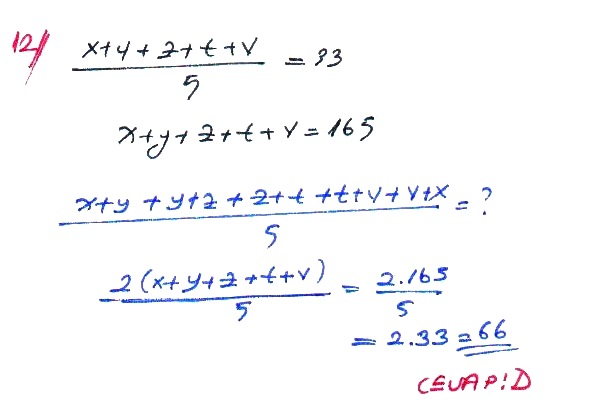 12/ (x+y+z+t+v)/5 = 33
x+y+z+t+v = 165
(x+y + y+z + z+t + t+v + v+x)/5 = ?
2(x+y+z+t+v)/5 = 2.165/5
= 2.33 = 66
CEVAP: D